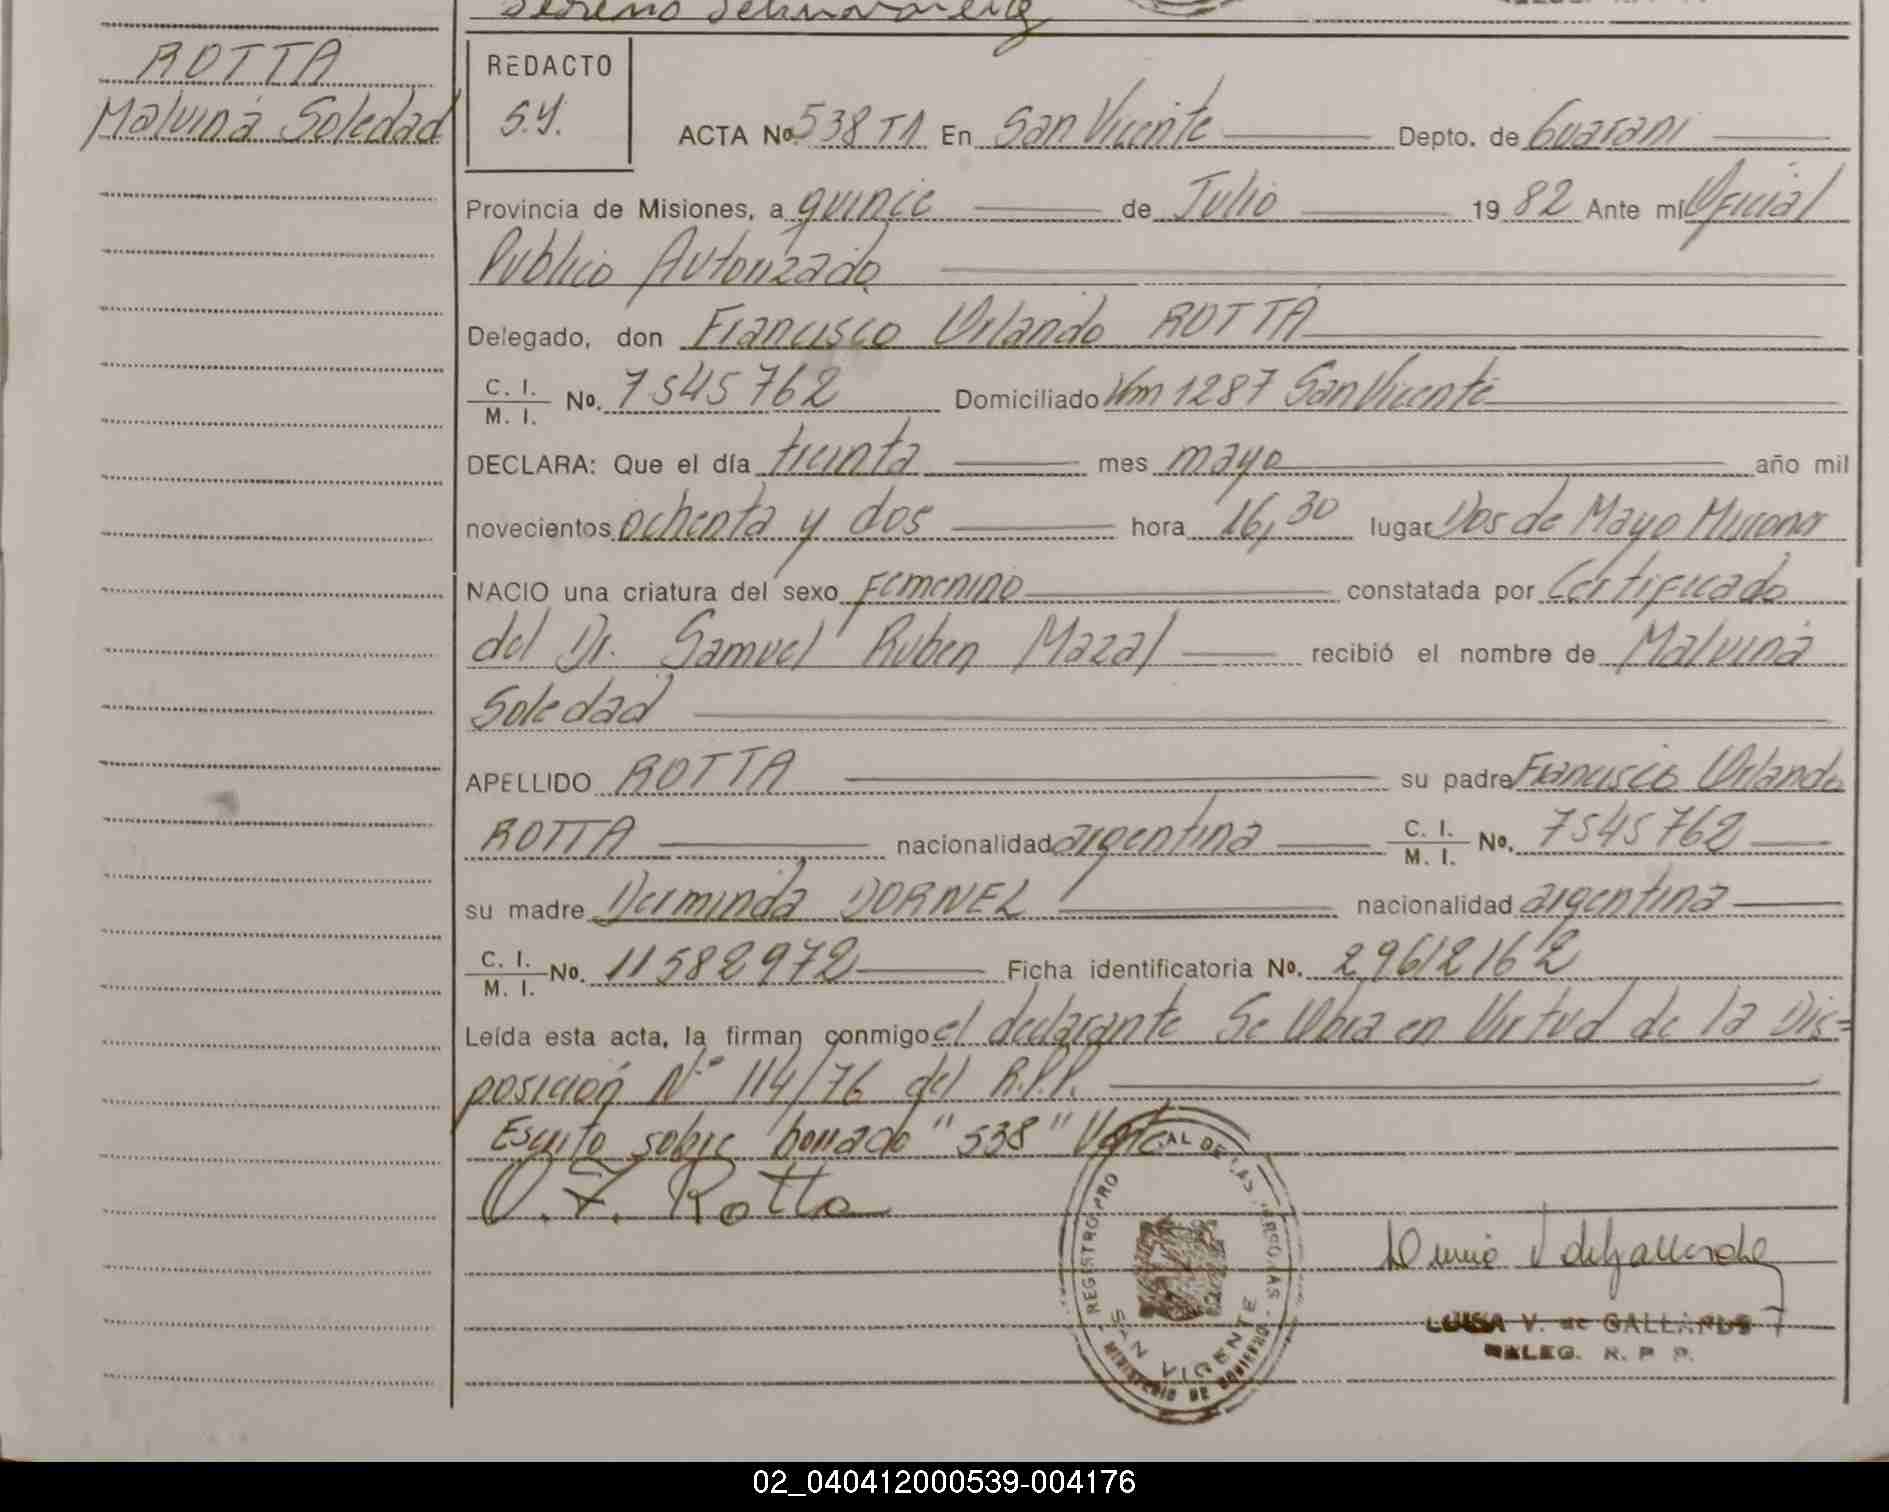 ROTTA
Malvina Soledad
REDACTO
S.Y.
ACTA No. 538 TA En San Vicente Depto. de Guarani
Provincia de Misiones, a quince de Julio 1982 Ante mi Oficial
Publico Autorizado
Delegado, don Francisco Orlando ROTTA
C. I. M. I. No. 7545762 Domiciliado Km 1287 San Vicente
DECLARA: Que el día treinta mes mayo año mil
novecientos ochenta y dos hora 16,30 lugar Dos de Mayo Misiones
NACIO una criatura del sexo Femenino constatada por Certificado
del Dr. Samuel Ruben Mazal recibió el nombre de Malvina
Soledad
APELLIDO ROTTA su padre Francisco Orlando
ROTTA nacionalidad argentina C. I. M. I. No. 7545762
su madre Derminda DORNEL nacionalidad argentina
C. I. M. I. No. 11582972 Ficha identificatoria No. 29612162
Leída esta acta, la firman conmigo el declarante Se Obra en Virtud de la Dis=
posición N° 114/76 del R.P.P.
Escrito sobre borrado "538" Vale
O. F. Rotta
REGISTRO PRO AL DE LAS PERSONAS
SAN VICENTE
MINISTERIO DE GOBIERNO
LUISA V. de GALLARDO
DELEG. R. P. P.
02_040412000539-004176